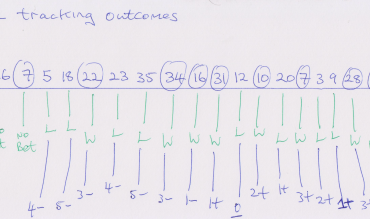 tracking outcomes
6 7 5 18 22 23 35 34 16 31 12 10 20 7 3 9 28
No L L W L L W W W L W L W L L W
Bet
4- 5- 3- 4- 5- 3- 1- 1+ 0 2+ 1+ 3+ 2+ 1+ 3+